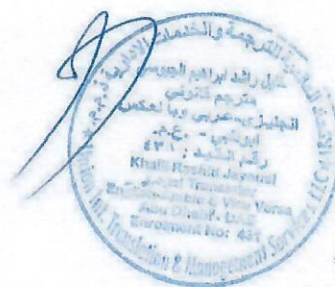 للترجمة والخدمات الإدارية ذ.م.م
خليل راشد ابراهيم الجيوسي
مترجم قانوني
انجليزي-عربي وبالعكس
ابوظبي - ا.ع.م.
رقم القيد :
Khalil Rashid Jayousi
Legal Translator
English-Arabic & Vice Versa
Abu Dhabi- UAE
Enrolment No: 431
Int. Translation & Management Services LLC